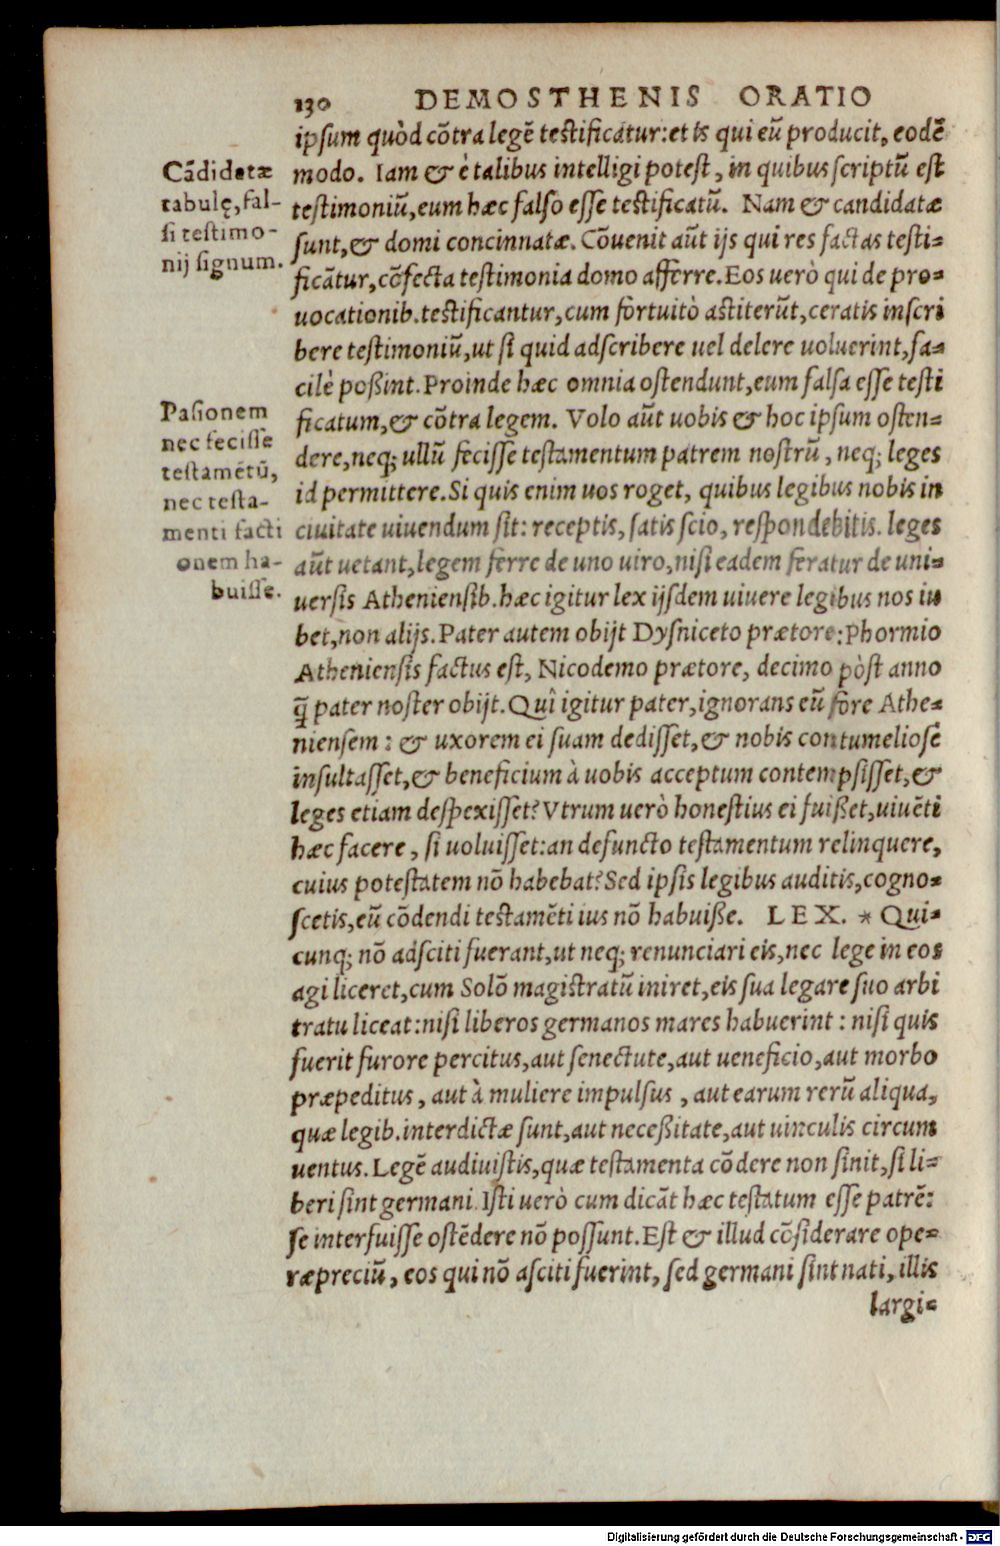 130 DEMOSTHENIS ORATIO
ipsum quòd cõtra legẽ testificatur: et is qui eũ producit, eodẽ
modo. Iam & è talibus intelligi potest, in quibus scriptũ est
testimoniũ, eum hæc falso esse testificatũ. Nam & candidatæ
sunt, & domi concinnatæ. Cõuenit aũt ijs qui res factas testi-
ficãtur, cõfecta testimonia domo afferre. Eos uerò qui de pro-
uocationib. testificantur, cum fortuitò astiterũt, ceratis inscri
bere testimoniũ, ut si quid adscribere uel delere uoluerint, fa-
cilè poßint. Proinde hæc omnia ostendunt, eum falsa esse testi
ficatum, & cõtra legem. Volo aũt uobis & hoc ipsum osten-
dere, neq; ullũ fecisse testamentum patrem nostrũ, neq; leges
id permittere. Si quis enim uos roget, quibus legibus nobis in
ciuitate uiuendum sit: receptis, satis scio, respondebitis. leges
aũt uetant, legem ferre de uno uiro, nisi eadem feratur de uni-
uersis Atheniensib. hæc igitur lex ijsdem uiuere legibus nos iu
bet, non alijs. Pater autem obijt Dysniceto prætore: Phormio
Atheniensis factus est, Nicodemo prætore, decimo pòst anno
q̃ pater noster obijt. Quî igitur pater, ignorans eũ fore Athe-
niensem: & uxorem ei suam dedisset, & nobis contumeliosè
insultasset, & beneficium à uobis acceptum contempsisset, &
leges etiam despexisset? Vtrum uerò honestius ei fuißet, uiuẽti
hæc facere, si uoluisset: an defuncto testamentum relinquere,
cuius potestatem nõ habebat? Sed ipsis legibus auditis, cogno-
scetis, eũ cõdendi testamẽti ius nõ habuiße. LEX. * Qui-
cunq; nõ adsciti fuerant, ut neq; renunciari eis, nec lege in eos
agi liceret, cum Solõ magistratũ iniret, eis sua legare suo arbi
tratu liceat: nisi liberos germanos mares habuerint: nisi quis
fuerit furore percitus, aut senectute, aut ueneficio, aut morbo
præpeditus, aut à muliere impulsus, aut earum rerũ aliqua,
quæ legib. interdictæ sunt, aut neceßitate, aut uinculis circum
uentus. Legẽ audiuistis, quæ testamenta cõdere non sinit, si li-
beri sint germani. Isti uerò cum dicãt hæc testatum esse patrẽ:
se interfuisse ostẽdere nõ possunt. Est & illud cõsiderare ope-
ræpreciũ, eos qui nõ asciti fuerint, sed germani sint nati, illis
largi-
Cãdidatæ
tabulę, fal-
si testimo-
nij signum.
Pasionem
nec fecisse
testamẽtũ,
nec testa-
menti facti
onem ha-
buisse.
Digitalisierung gefördert durch die Deutsche Forschungsgemeinschaft - DFG